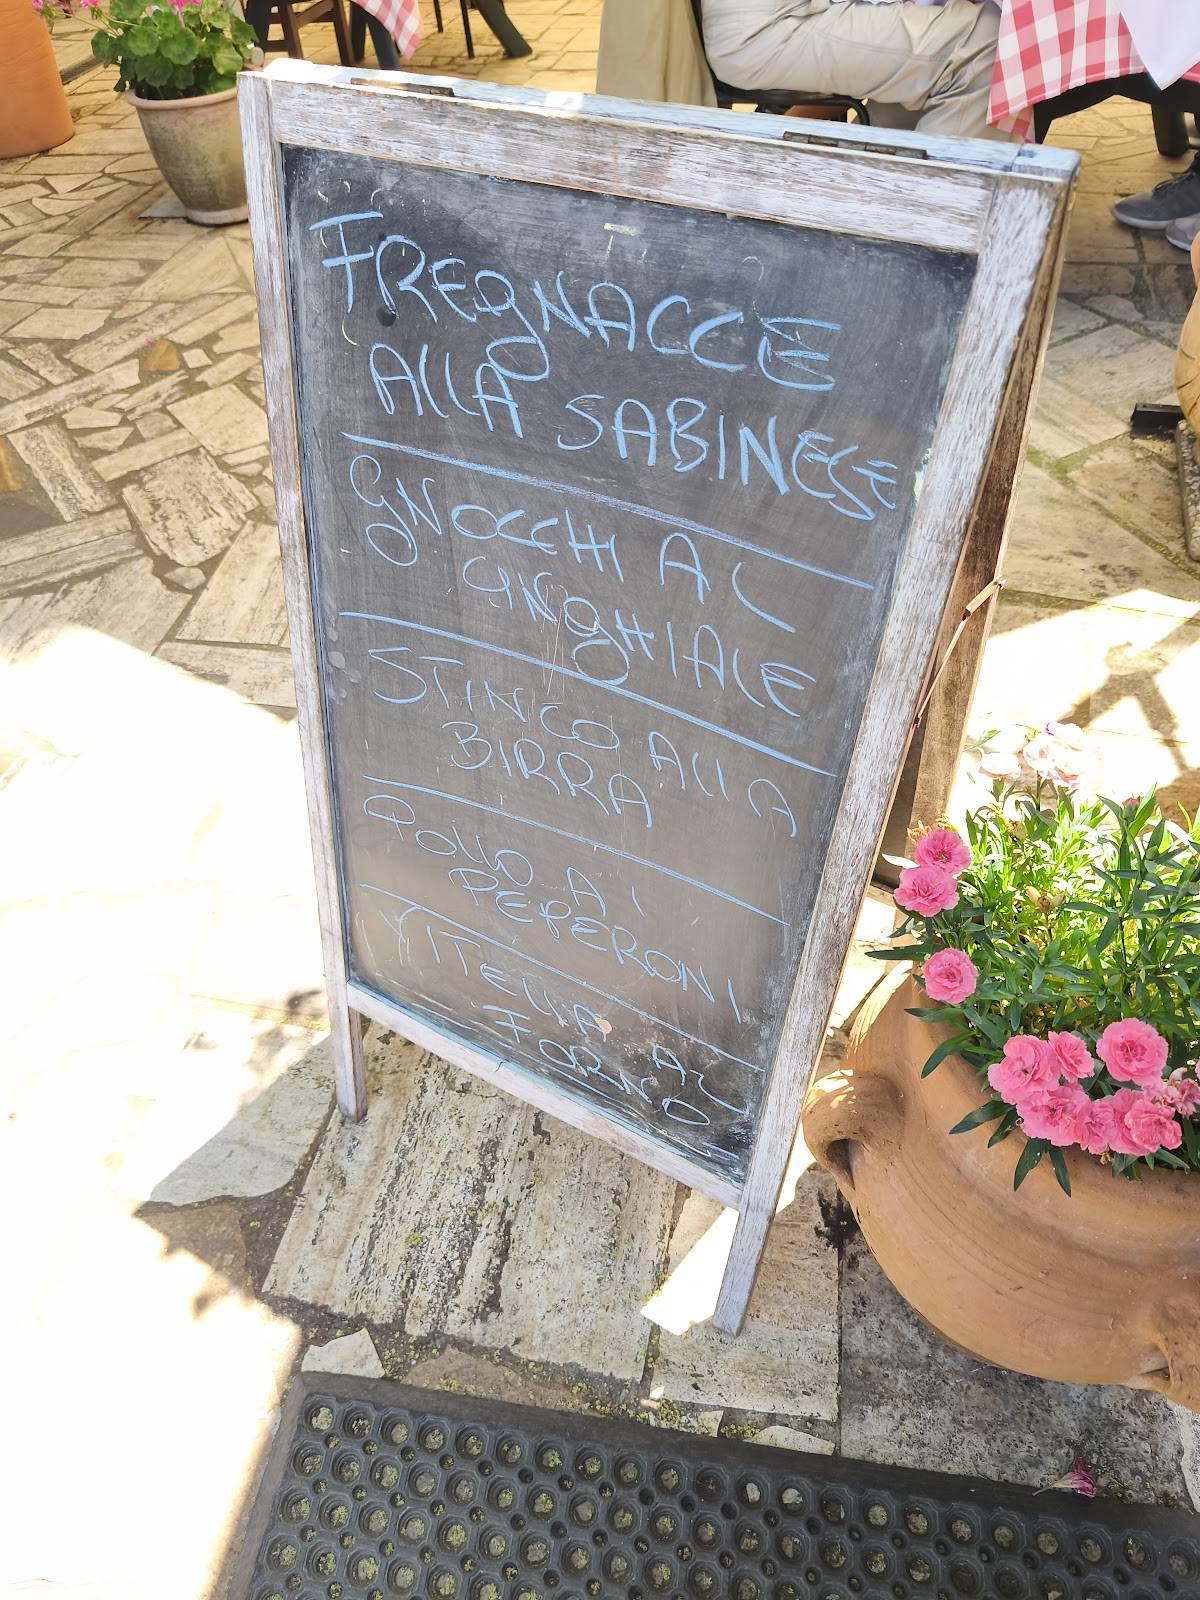 FREGNACCE
ALLA SABINESE
GNOCCHI AL
CINGHIALE
STINCO ALLA
BIRRA
POLLO AI
PEPERONI
VITELLA AL
FORNO